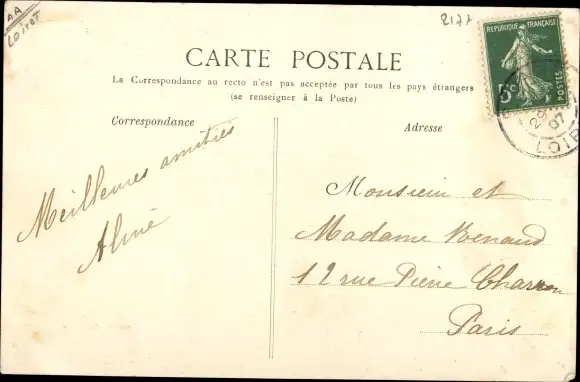 AA
Loiret
RÉPUBLIQUE FRANÇAISE
5c
POSTES
29
07
LOIRET
CARTE POSTALE
La Correspondance au recto n'est pas acceptée par tous les pays étrangers
(se renseigner à la Poste)
Correspondance
Meilleures amitiés
Adresse
Monsieur et
Madame Renaud
12 rue Pierre Charron
Paris